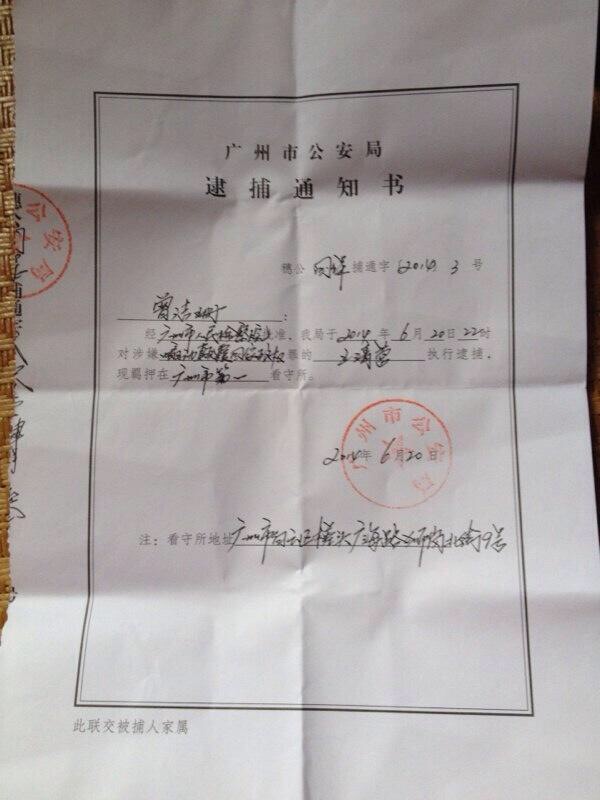 广州市公安局
逮捕通知书
穗公 捕通字〔2014〕3号
曾洁珊：
经广州市人民检察院批准，我局于2014年6月20日22时
对涉嫌煽动颠覆国家政权罪的王清营执行逮捕，
现羁押在广州市第一看守所。
广州市公安局
2014年6月20日
注：看守所地址广州市白云区槎头广海路 岗北街9号
此联交被捕人家属
公安局